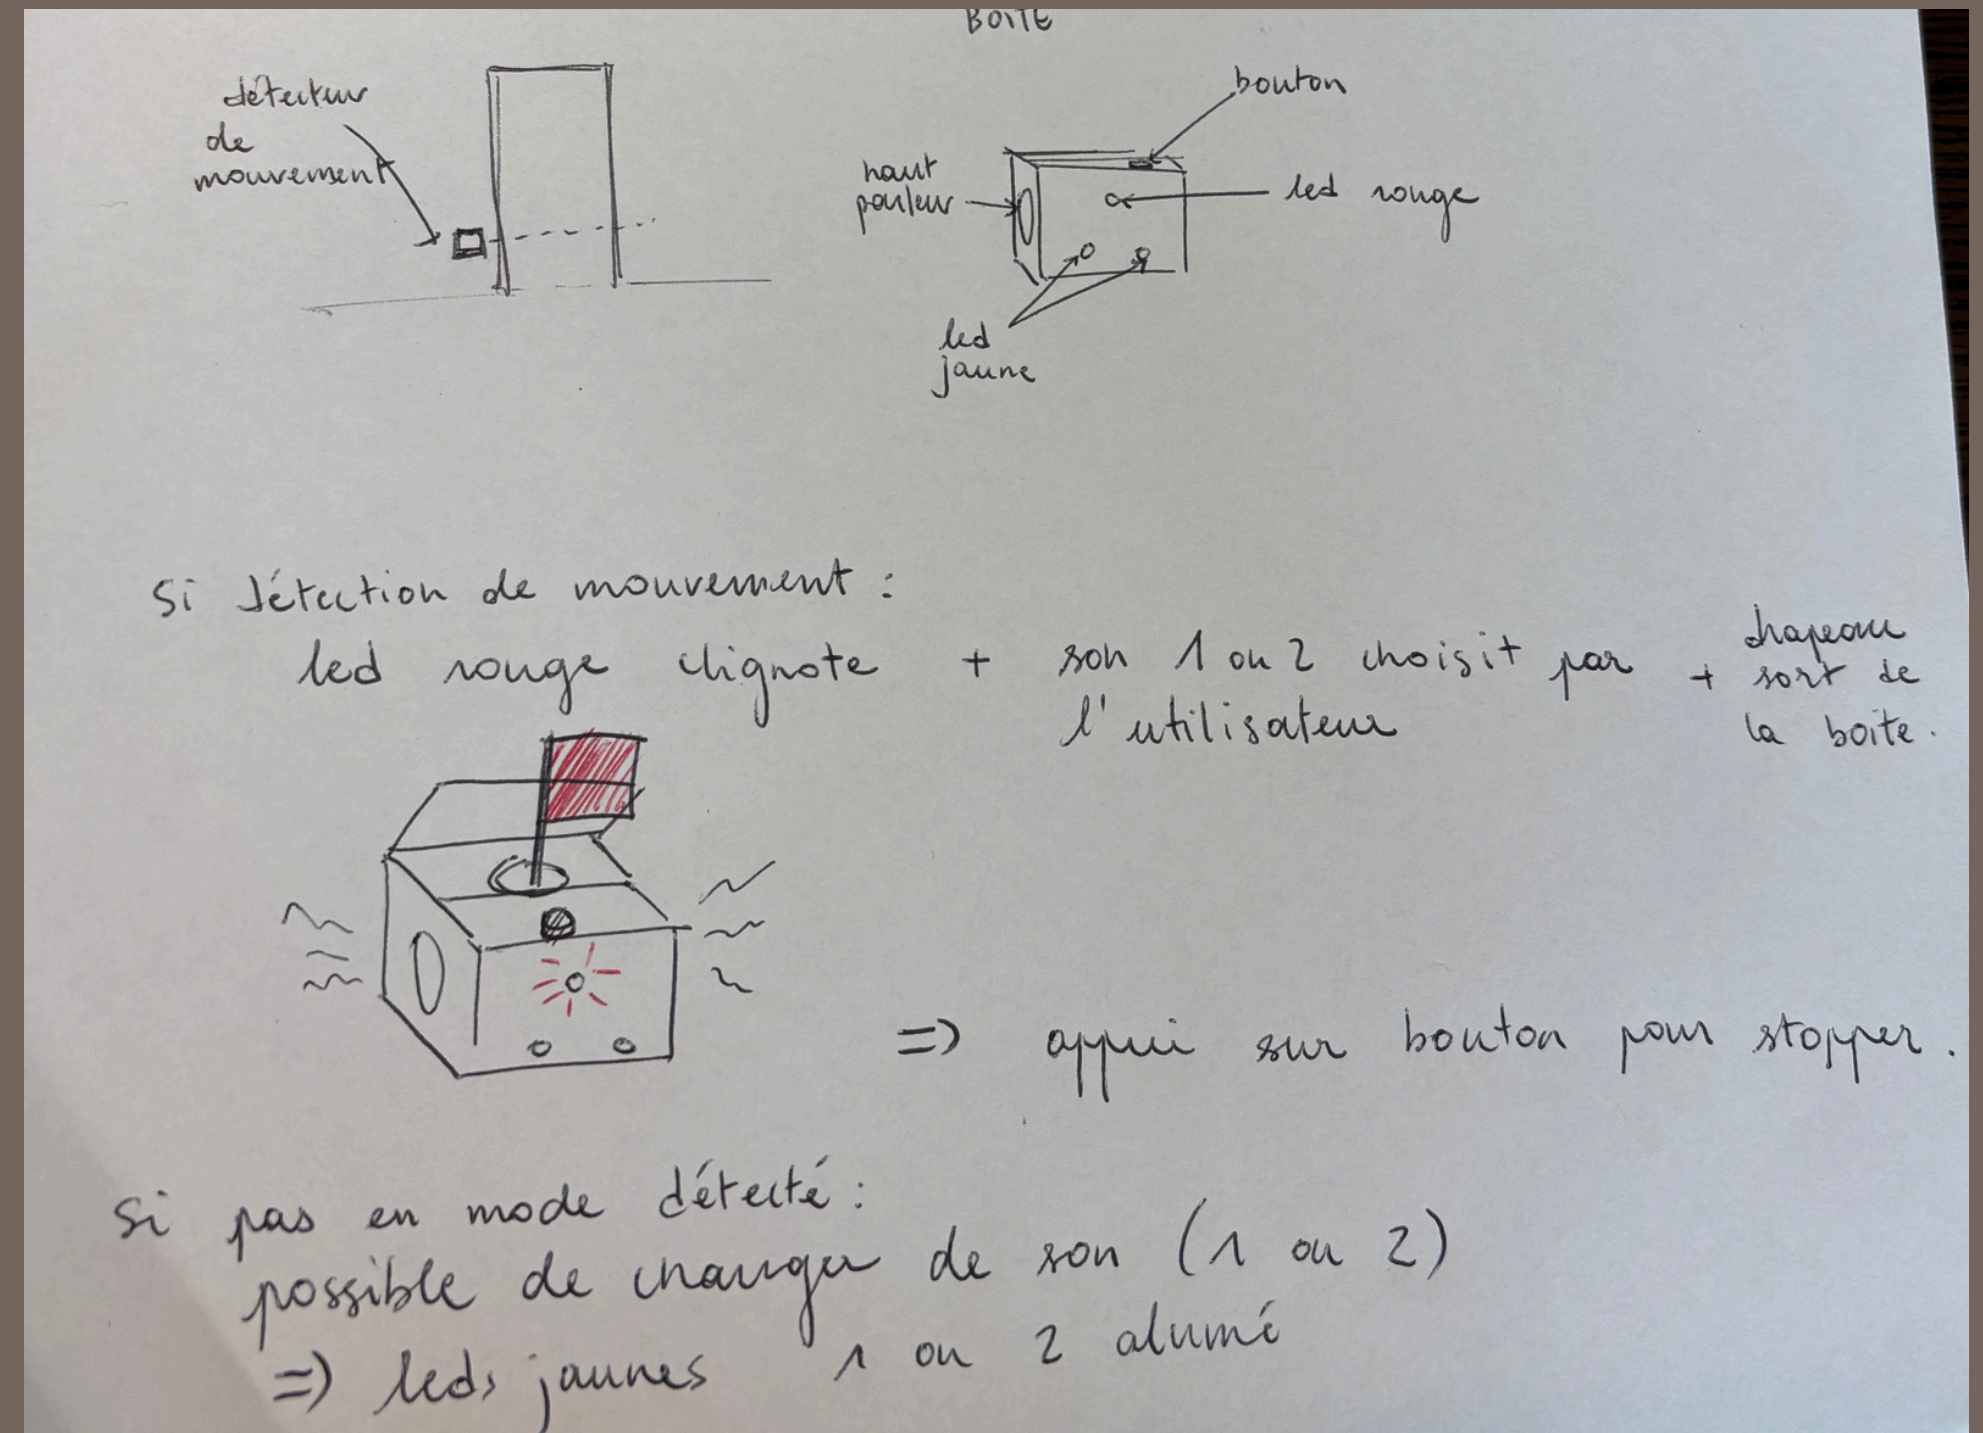 BOITE
détecteur
de
mouvement
bouton
haut
parleur
led rouge
led
jaune
Si détection de mouvement :
led rouge clignote + son 1 ou 2 choisit par
l'utilisateur
+ drapeau
sort de
la boite.
=> appui sur bouton pour stopper.
Si pas en mode détecté :
possible de changer de son (1 ou 2)
=> leds jaunes 1 ou 2 alumé